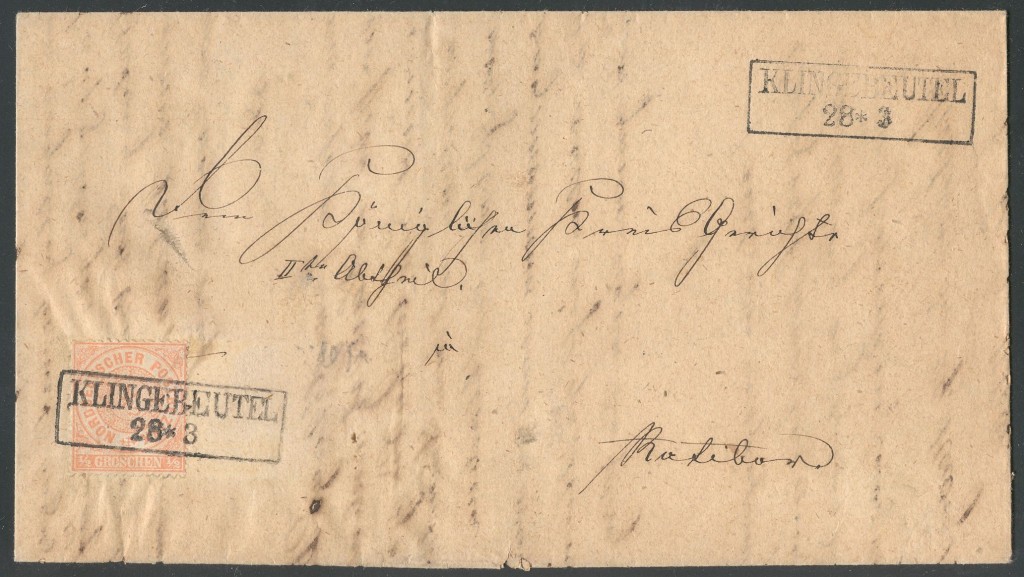 KLINGEBEUTEL
28 * 3
Dem Königlichen Kreis Gerichte
IIte Abtheil.
in
Ratibor
NORDDEUTSCHER POST
KLINGEBEUTEL
28 * 3
1/2 GROSCHEN 1/2